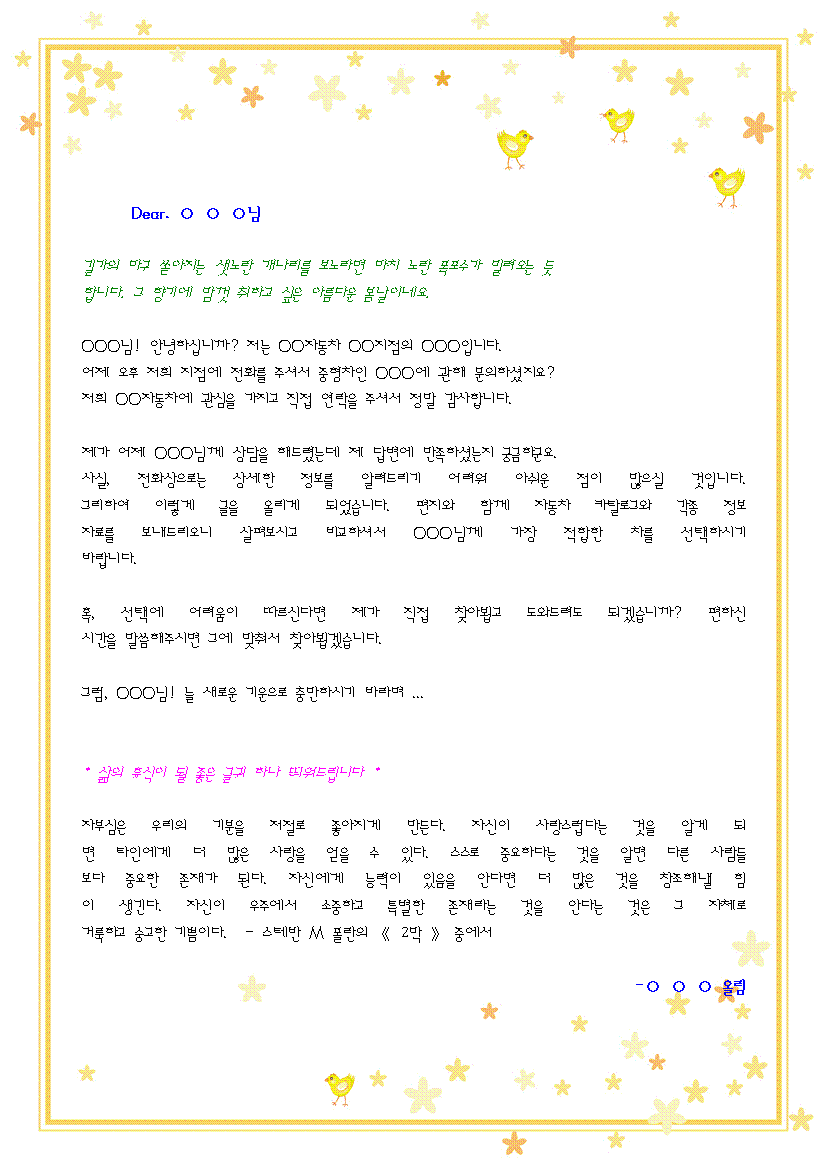 Dear. ○ ○ ○님
길가의 마구 쏟아지는 샛노란 개나리를 보노라면 마치 노란 폭포수가 밀려오는 듯
합니다. 그 향기에 맘껏 취하고 싶은 아름다운 봄날이네요.
○○○님! 안녕하십니까? 저는 ○○자동차 ○○지점의 ○○○입니다.
어제 오후 저희 지점에 전화를 주셔서 중형차인 ○○○에 관해 문의하셨지요?
저희 ○○자동차에 관심을 가지고 직접 연락을 주셔서 정말 감사합니다.
제가 어제 ○○○님께 상담을 해드렸는데 제 답변에 만족하셨는지 궁금하군요.
사실, 전화상으로는 상세한 정보를 알려드리기 어려워 아쉬운 점이 많으실 것입니다.
그리하여 이렇게 글을 올리게 되었습니다. 편지와 함께 자동차 카탈로그와 각종 정보
자료를 보내드리오니 살펴보시고 비교하셔서 ○○○님께 가장 적합한 차를 선택하시기
바랍니다.
혹, 선택에 어려움이 따르신다면 제가 직접 찾아뵙고 도와드려도 되겠습니까? 편하신
시간을 말씀해주시면 그에 맞춰서 찾아뵙겠습니다.
그럼, ○○○님! 늘 새로운 기운으로 충만하시기 바라며 ...
* 삶의 휴식이 될 좋은 글귀 하나 띄워드립니다 *
자부심은 우리의 기분을 저절로 좋아지게 만든다. 자신이 사랑스럽다는 것을 알게 되
면 타인에게 더 많은 사랑을 얻을 수 있다. 스스로 중요하다는 것을 알면 다른 사람들
보다 중요한 존재가 된다. 자신에게 능력이 있음을 안다면 더 많은 것을 창조해낼 힘
이 생긴다. 자신이 우주에서 소중하고 특별한 존재라는 것을 안다는 것은 그 자체로
거룩하고 숭고한 기쁨이다. - 스테반 M 폴란의 《 2막 》 중에서
-○ ○ ○ 올림